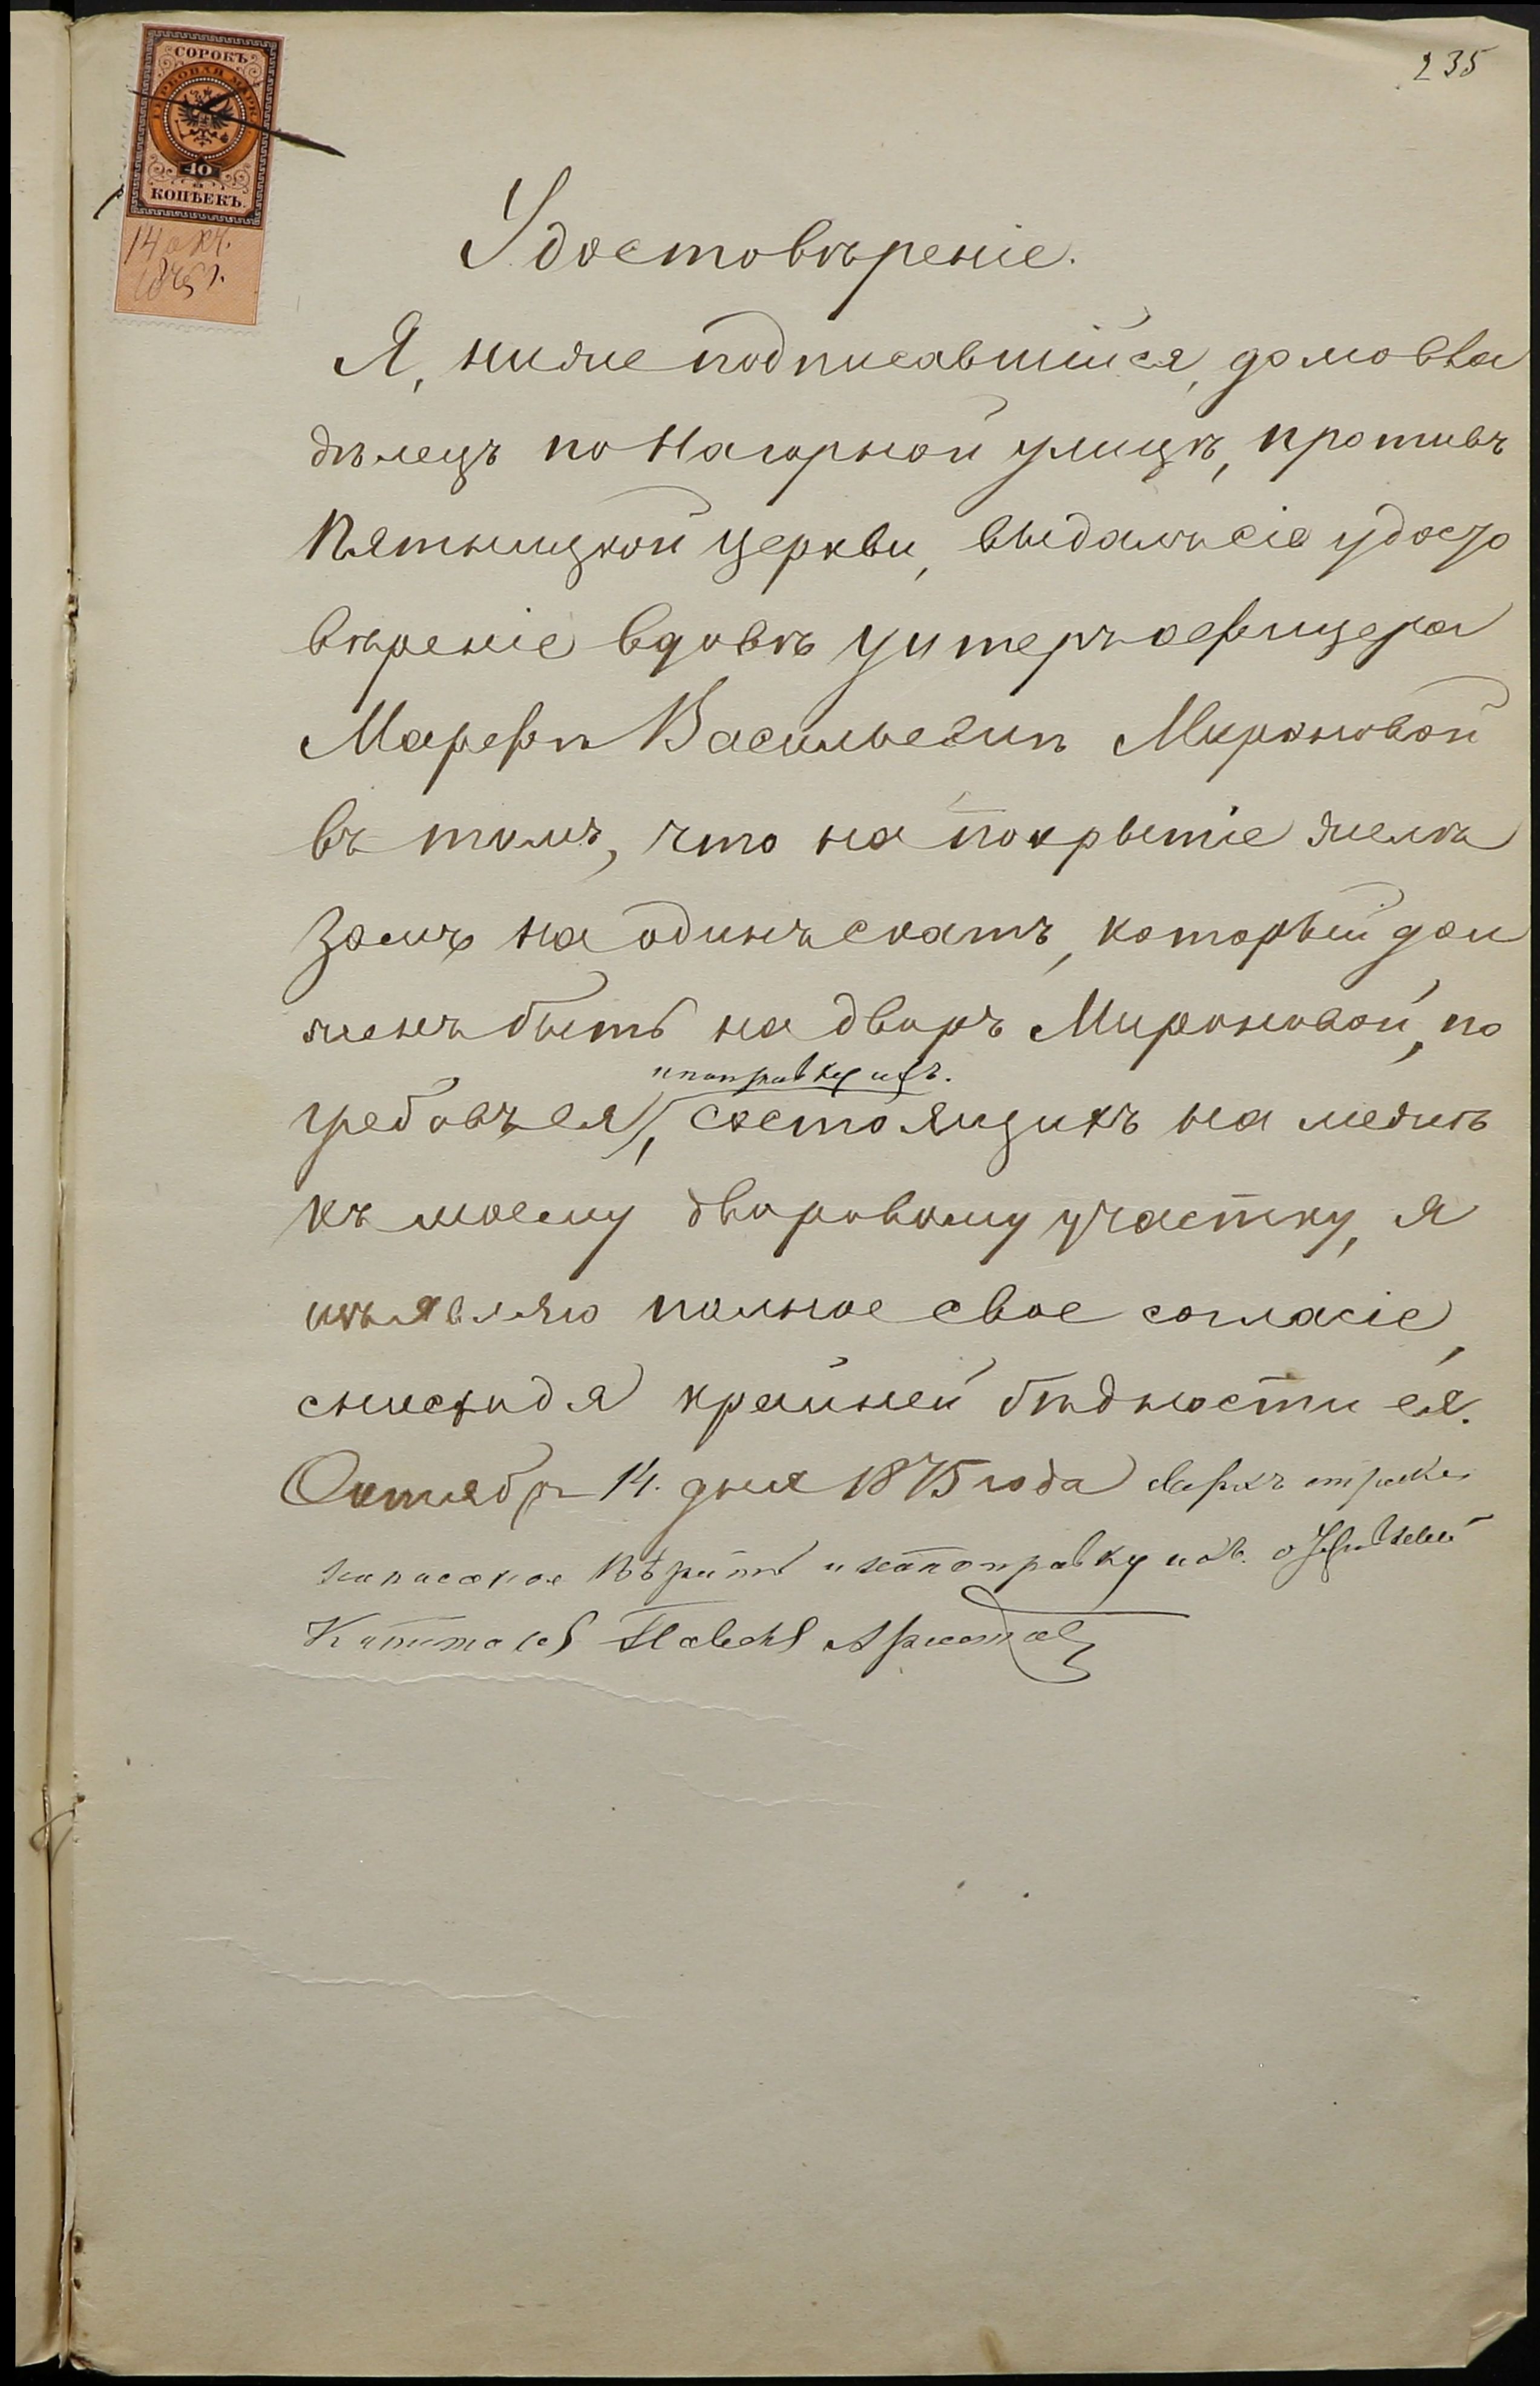 235
СОРОКЪ
ГЕРБОВАЯ МАРКА
40
КОПѢЕКЪ.
14 окт.
1875 г.
Удостовѣреніе.
Я, ниже подписавшийся, домовла
дѣлецъ по Нагорной улицѣ, противъ
Пятницкой церкви, выдалъ сіе удосто
вѣреніе вдовѣ унтеръ офицера
Марефѣ Васильевнѣ Мироновой
въ томъ, что на покрытіе желѣ
зомъ на одинъ скатъ, который дол
женъ быть на дворъ Мироновой, по
и поправку изб.
гребовъ ея, состоящихъ на межѣ
къ моему дворовому участку, я
изъявляю полное свое согласіе,
снисходя крайней бѣдности ея.
Октября 14. дня 1875 года сверхъ строки
написаное вѣрить и на поправку изб.
Капитанъ Павелъ